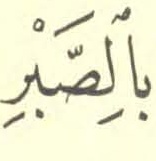 بِاُلصَّبْرِ